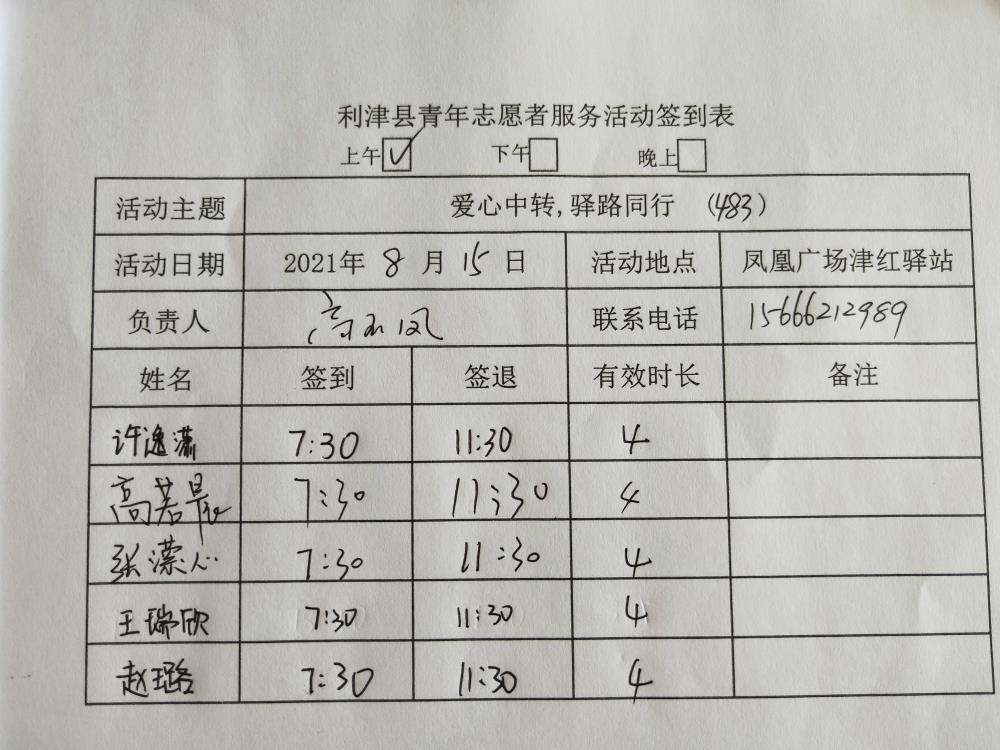 利津县青年志愿者服务活动签到表
上午☑ 下午□ 晚上□
活动主题 爱心中转,驿路同行 (483)
活动日期 2021年 8 月 15 日 活动地点 凤凰广场津红驿站
负责人 高玉凤 联系电话 15666212989
姓名 签到 签退 有效时长 备注
许逸潇 7:30 11:30 4
高若晨 7:30 11:30 4
张潆心 7:30 11:30 4
王瑞欣 7:30 11:30 4
赵璐 7:30 11:30 4